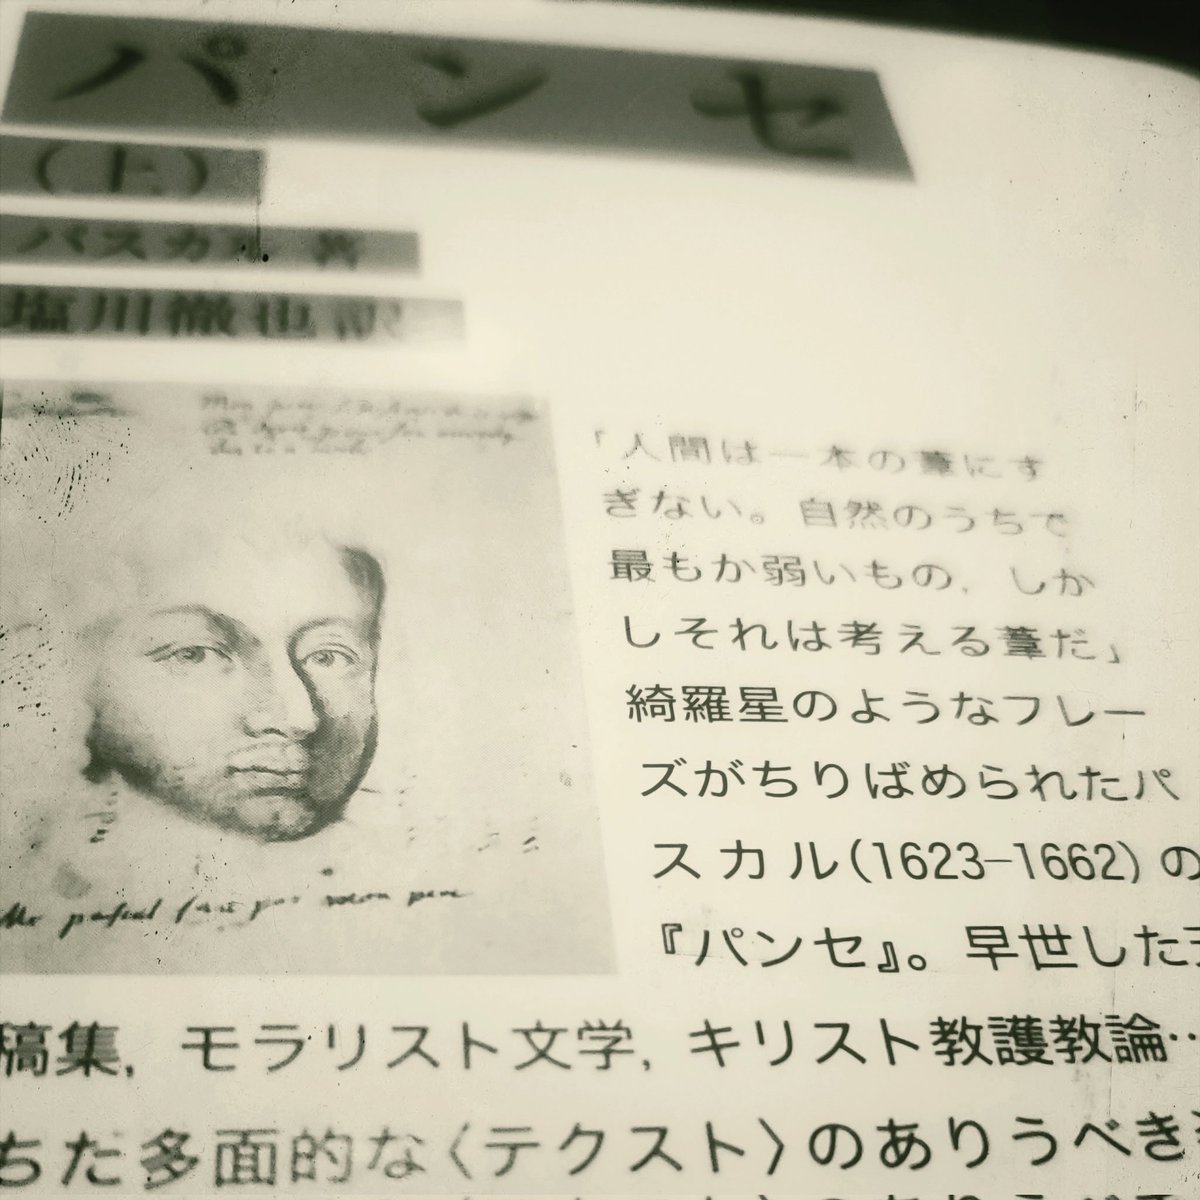 パンセ
(上)
パスカル 著
塩川徹也訳
「人間は一本の葦にす
ぎない。自然のうちで
最もか弱いもの，しか
しそれは考える葦だ」
綺羅星のようなフレー
ズがちりばめられたパ
スカル(1623–1662)の
『パンセ』。早世した
稿集，モラリスト文学，キリスト教護教論…
ちた多面的な〈テクスト〉のありうべき